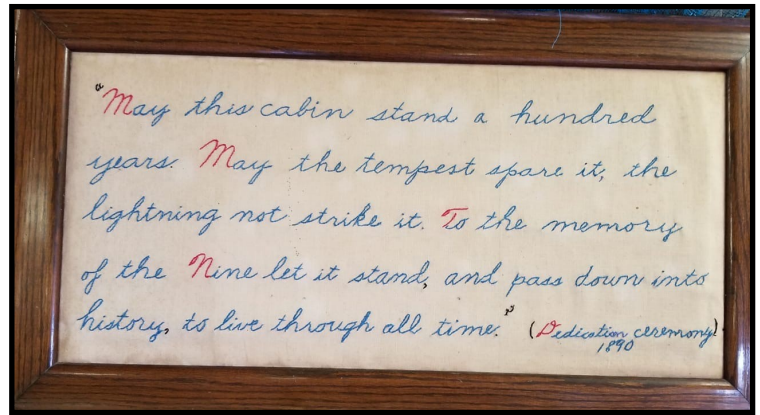 "May this cabin stand a hundred
years. May the tempest spare it, the
lightning not strike it. To the memory
of the Nine let it stand, and pass down into
history, to live through all time." (Dedication ceremony)
1890